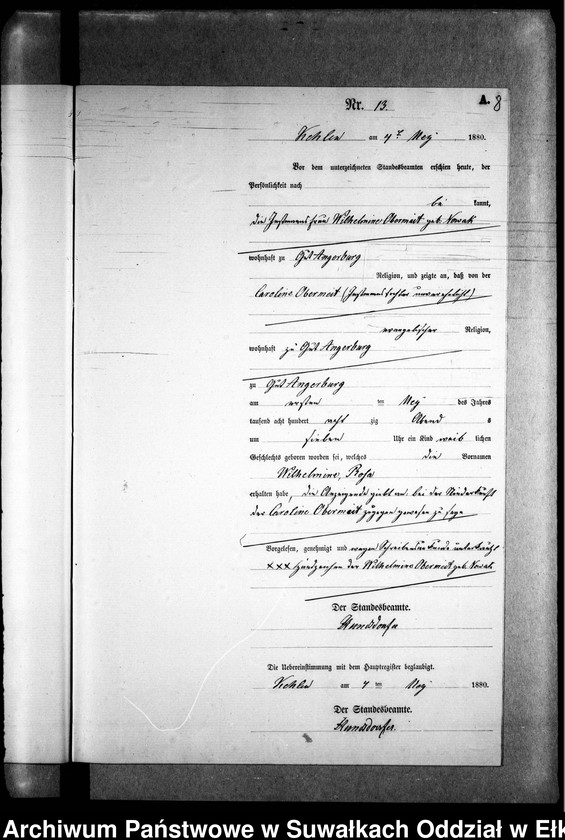 A. 8
Nr. 13.
Kehlen am 4t Mai 1880.
Vor dem unterzeichneten Standesbeamten erschien heute, der
Persönlichkeit nach
be kannt,
die Instmannsfrau Wilhelmine Obermeit geb. Nowak
wohnhaft zu Gut Angerburg
Religion, und zeigte an, daß von der
Caroline Obermeit (Instmannstochter unverehelicht)
evangelischer Religion,
wohnhaft zu Gut Angerburg
zu Gut Angerburg
am ersten ten Mai des Jahres
tausend acht hundert acht zig Abend s
um sieben Uhr ein Kind weib lichen
Geschlechts geboren worden sei, welches die Vornamen
Wilhelmine, Rosa
erhalten habe, die Anzeigende giebt an bei der Niederkunft
der Caroline Obermeit zugegen gewesen zu sein
Vorgelesen, genehmigt und wegen Schreibensunkunde unterkreuzt
XXX Handzeichen der Wilhelmine Obermeit geb. Nowak
Der Standesbeamte.
Hunsdorfer
Die Uebereinstimmung mit dem Hauptregister beglaubigt.
Kehlen am 4 ten Mai 1880.
Der Standesbeamte.
Hunsdorfer.
Archiwum Państwowe w Suwałkach Oddział w Ełk